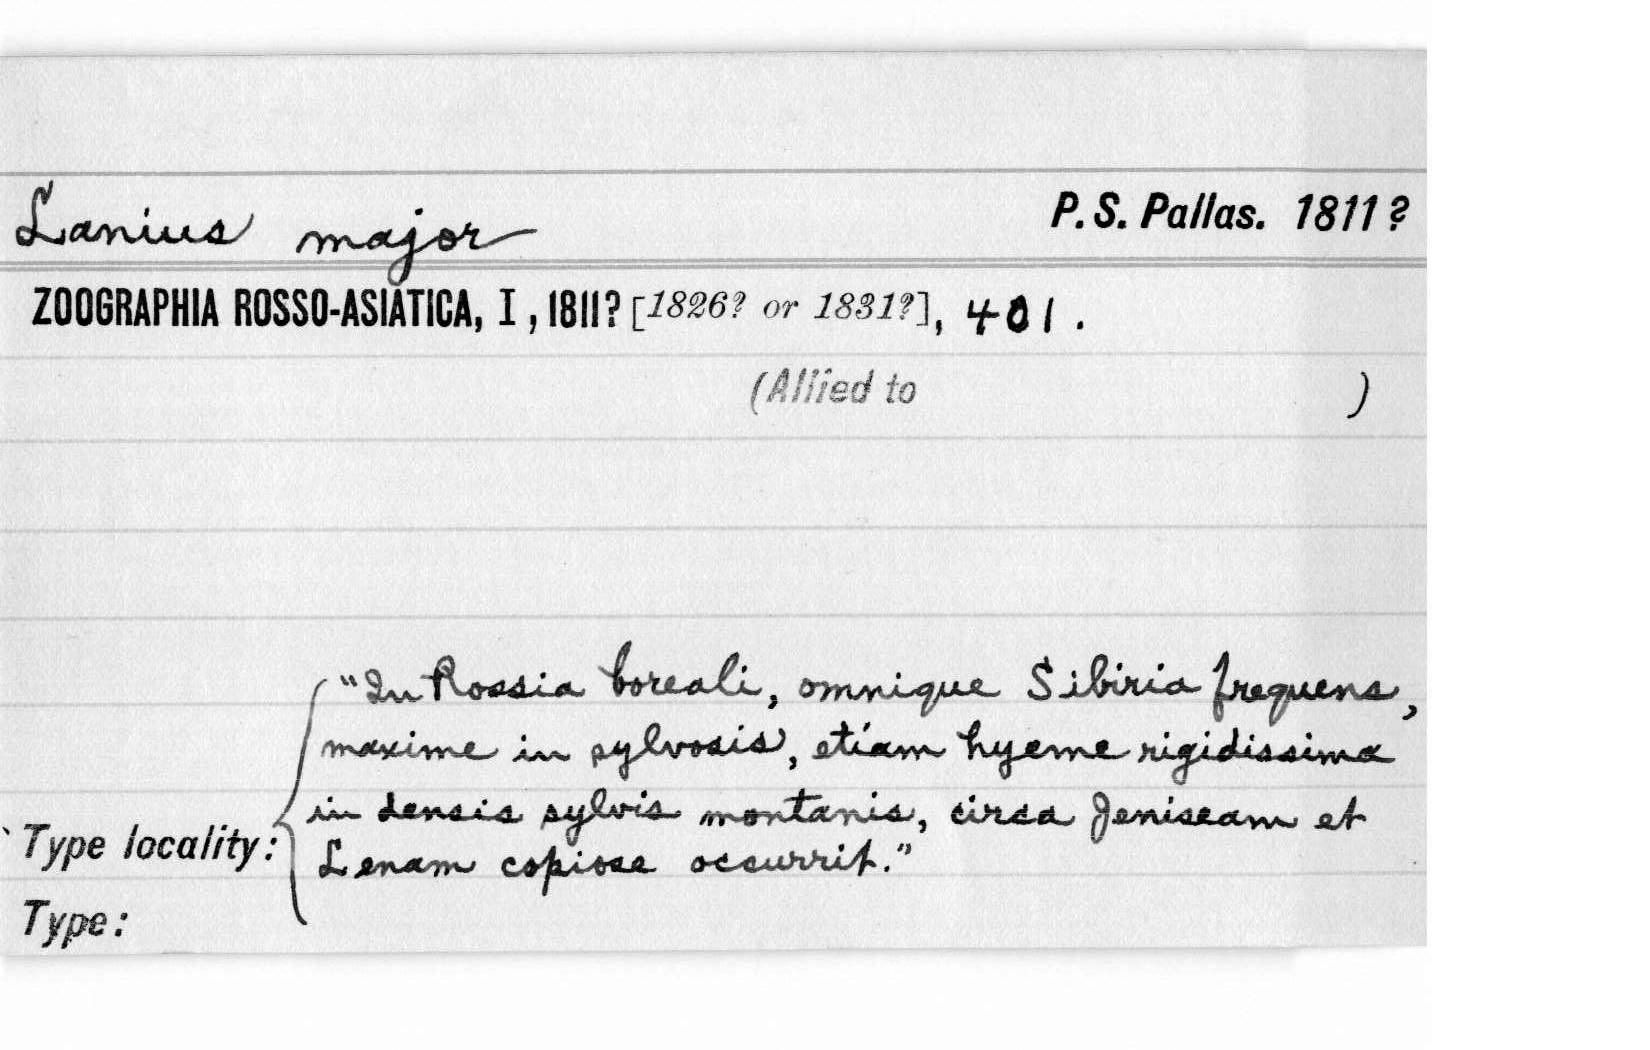 Lanius major P. S. Pallas. 1811?
ZOOGRAPHIA ROSSO-ASIATICA, I, 1811? [1826? or 1831?], 401.
(Allied to )
"In Rossia boreali, omnique Sibiria frequens,
maxime in sylvosis, etiam hyeme rigidissima
in densis sylvis montanis, circa Jeniseam et
Type locality: Lenam copiose occurrit."
Type: